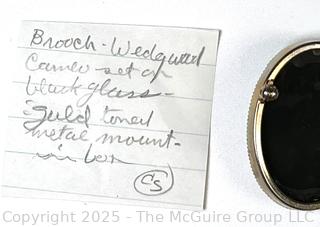 Brooch - Wedgwood
Cameo set on
black glass -
Gold toned
metal mount -
in box
CS
Copyright © 2025 - The McGuire Group LLC